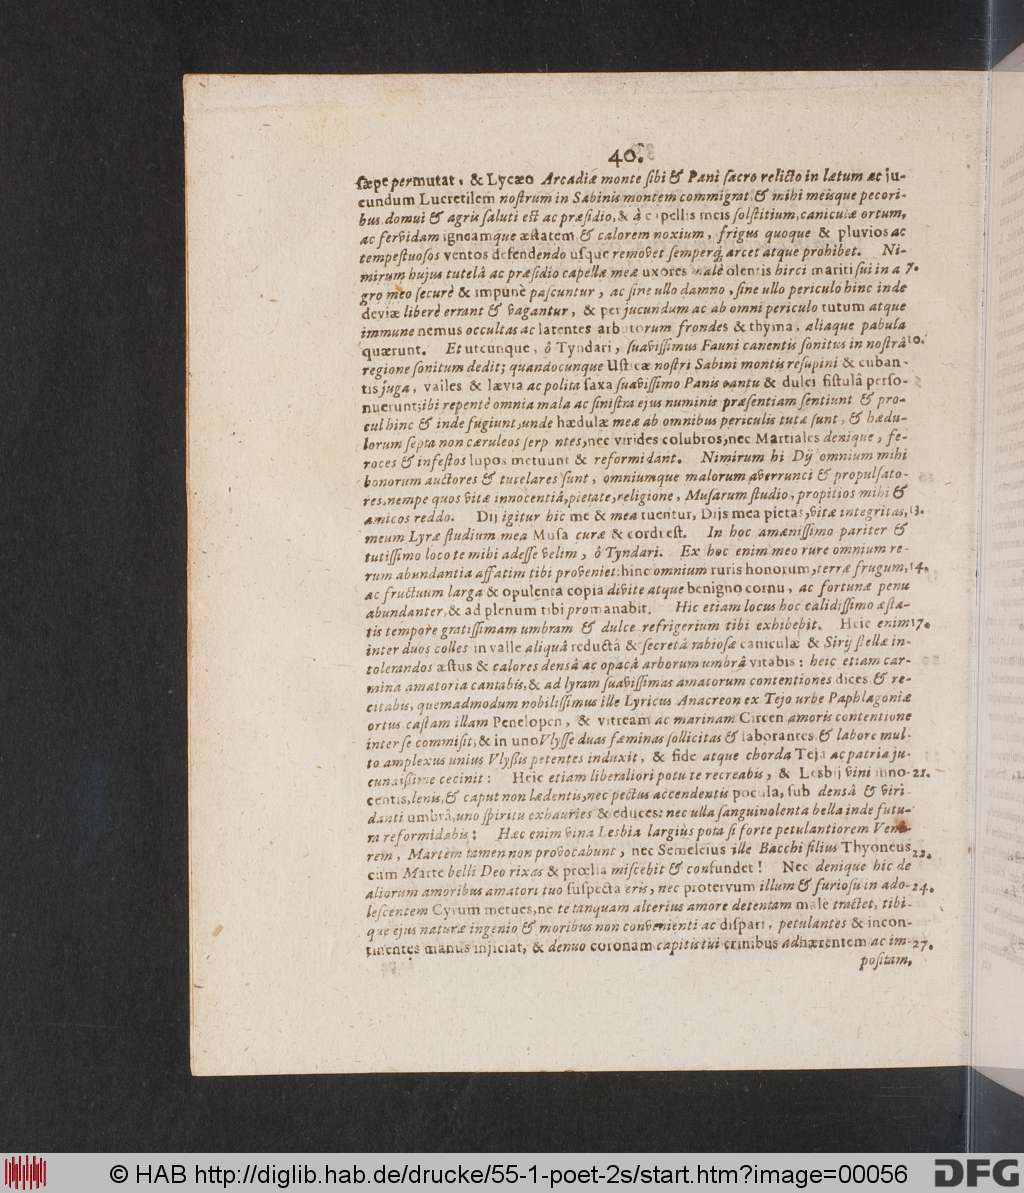 40.
sæpe permutat, & Lycæo Arcadiæ monte sibi & Pani sacro relicto in lætum ac ju-
cundum Lucretilem nostrum in Sabinis montem commigrat & mihi meisque pecori-
bus domui & agris saluti est ac præsidio, & à capellis meis solstitium, caniculæ ortum,
ac fervidam igneamque æstatem & calorem noxium, frigus quoque & pluvios ac
tempestuosos ventos defendendo usque removet semperq; arcet atque prohibet. Ni-
mirum hujus tutelâ ac præsidio capellæ meæ uxores malè olentis hirci mariti sui in a 7.
gro meo securè & impunè pascuntur, ac sine ullo damno, sine ullo periculo hinc inde
deviæ liberè errant & vagantur, & per jucundum ac ab omni periculo tutum atque
immune nemus occultas ac latentes arbutorum frondes & thyma, aliaque pabula
quærunt. Et utcunque, ô Tyndari, suavissimus Fauni canentis sonitus in nostrâ 10.
regione sonitum dedit; quandocunque Usticæ nostri Sabini montis resupini & cuban-
tis juga, valles & lævia ac polita saxa suavissimo Panis cantu & dulci fistulâ perso-
nuerunt; ibi repentè omnia mala ac sinistra ejus numinis præsentiam sentiunt & pro-
cul hinc & inde fugiunt, unde hædulæ meæ ab omnibus periculis tutæ sunt, & hædu-
lorum septa non cæruleos serp ntes, nec virides colubros, nec Martiales denique, fe-
roces & infestos lupos metuunt & reformidant. Nimirum hi Dij omnium mihi
bonorum auctores & tutelares sunt, omniumque malorum averrunci & propulsato-
res, nempe quos vitæ innocentiâ, pietate, religione, Musarum studio, propitios mihi &
amicos reddo. Dij igitur hic me & mea tuentur, Dijs mea pietas, vitæ integritas, 13.
meum Lyræ studium mea Musa curæ & cordi est. In hoc amænissimo pariter &
tutissimo loco te mihi adesse velim, ô Tyndari. Ex hoc enim meo rure omnium re-
rum abundantia affatim tibi proveniet: hinc omnium ruris honorum, terræ frugum, 14.
ac fructuum larga & opulenta copia divite atque benigno cornu, ac fortunæ penu
abundanter, & ad plenum tibi promanabit. Hic etiam locus hoc calidissimo æsta-
tis tempore gratissimam umbram & dulce refrigerium tibi exhibebit. Heic enim 17.
inter duos colles in valle aliquâ reductâ & secretâ rabiosæ caniculæ & Sirij stellæ in-
tolerandos æstus & calores densâ ac opacâ arborum umbrâ vitabis: heic etiam car-
mina amatoria cantabis, & ad lyram suavissimas amatorum contentiones dices & re-
citabis, quemadmodum nobilissimus ille Lyricus Anacreon ex Tejo urbe Paphlagoniæ
ortus castam illam Penelopen, & vitream ac marinam Circen amoris contentione
inter se commisit, & in uno Vlysse duas fæminas sollicitas & laborantes & labore mul-
to amplexus unius Vlyssis petentes induxit, & fide atque chorda Teja ac patria ju-
cundissime cecinit: Heic etiam liberaliori potu te recreabis, & Lesbij vini inno- 21.
centis, lenis, & caput non lædentis, nec pectus accendentis pocula, sub densâ & viri-
danti umbrâ, uno spiritu exhauries & educes: nec ulla sanguinolenta bella inde futu-
ra reformidabis: Hæc enim vina Lesbia largius pota si forte petulantiorem Vene-
rem, Martem tamen non provocabunt, nec Semeleius ille Bacchi filius Thyoneus 22.
cum Marte belli Deo rixas & prœlia miscebit & confundet! Nec denique hic de
aliorum amoribus amatori tuo suspecta eris, nec protervum illum & furiosum ado- 24.
lescentem Cyrum metues, ne te tanquam alterius amore detentam male tractet, tibi-
que ejus naturæ ingenio & moribus non convenienti ac dispari, petulantes & incon-
tinentes manus injiciat, & denuo coronam capitis tui crinibus adhærentem ac im- 27.
positam,
© HAB http://diglib.hab.de/drucke/55-1-poet-2s/start.htm?image=00056
DFG